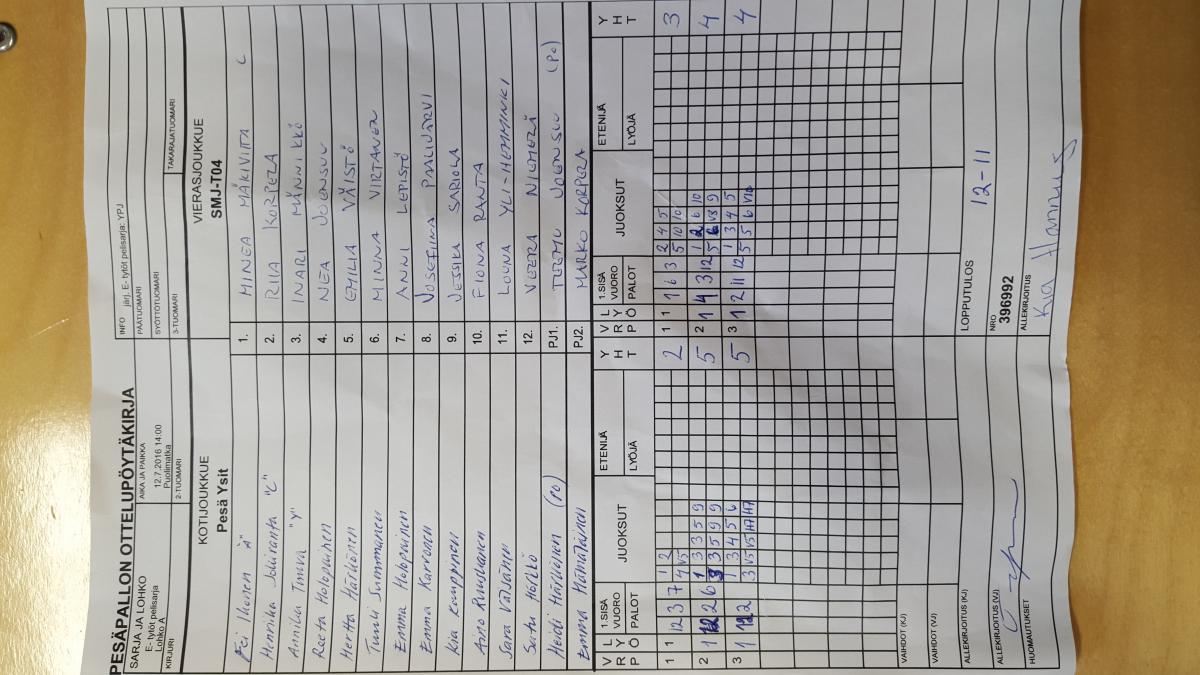 PESÄPALLON OTTELUPÖYTÄKIRJA
SARJA JA LOHKO
E- tytöt pelisarja
Lohko A
AIKA JA PAIKKA
12.7.2016 14:00
Puolimatka
INFO järj. E- tytöt pelisarja: YPJ
PÄÄTUOMARI
SYÖTTÖTUOMARI
KIRJURI
2-TUOMARI
3-TUOMARI
TAKARAJATUOMARI
KOTIJOUKKUE
Pesä Ysit
VIERASJOUKKUE
SMJ-T04
Fei Ikonen
1. MINEA MÄKIVIITA C
Hennika Jokiranta "C"
2. RIIA KORPELA
Annika Timva "Y"
3. INARI MÄNNIKKÖ
Reeta Holopainen
4. NEA JOENSUU
Hertta Härkönen
5. EMILIA VÄISTÖ
Tuuli Summanen
6. MINNA VIRTANEN
Emma Holopainen
7. ANNI LEPISTÖ
Emma Karvonen
8. JOSEFIINA PAALIJÄRVI
Kia Kauppinen
9. JESSIKA SARIOLA
Aino Ruuskanen
10. FIIONA RANTA
Sara Väisänen
11. LOUNA YLI-HEMMINKI
Satu Hörkkö
12. VEERA NIEMELÄ
Heidi Härkönen (PO)
PJ1. TEEMU JOENSUU (PO)
Emma Hämäläinen
PJ2. MARKO KORPELA
V R P
L Y Ö
1.SISÄ VUORO
PALOT
JUOKSUT
ETENIJÄ
LYÖJÄ
Y H T
V R P
L Y Ö
1.SISÄ VUORO
PALOT
JUOKSUT
ETENIJÄ
LYÖJÄ
Y H T
1 1 12 3 7 1 2 2
4 V5
1 1 1 6 3 2 4 5 3
5 10 10
2 1 12 2 6 1 3 3 5 9 5
3 3 5 9 9
2 1 4 3 12 1 2 6 10 4
5 6 V3 9
3 1 12 2 1 3 4 5 6 5
3 V5 V5 H7 H7
3 1 2 11 12 1 3 4 5 4
5 5 6 V10
VAIHDOT (KJ)
VAIHDOT (VJ)
ALLEKIRJOITUS (KJ)
LOPPUTULOS
12-11
ALLEKIRJOITUS (VJ)
NRO
396992
HUOMAUTUKSET
ALLEKIRJOITUS
Kia Hannus